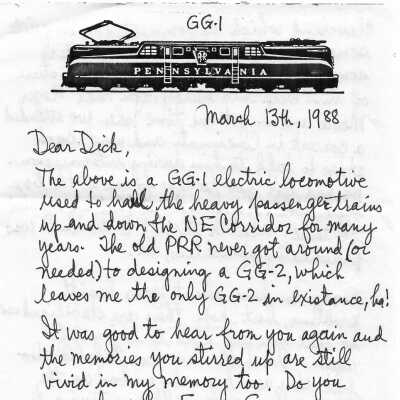 GG-1
PENNSYLVANIA
March 13th, 1988
Dear Dick,
The above is a GG-1 electric locomotive
used to hall the heavy passenger trains
up and down the NE Corridor for many
years. The old PRR never got around (or
needed) to designing a GG-2, which
leaves me the only GG-2 in existance, ha!
It was good to hear from you again and
the memories you stirred up are still
vivid in my memory too. Do you